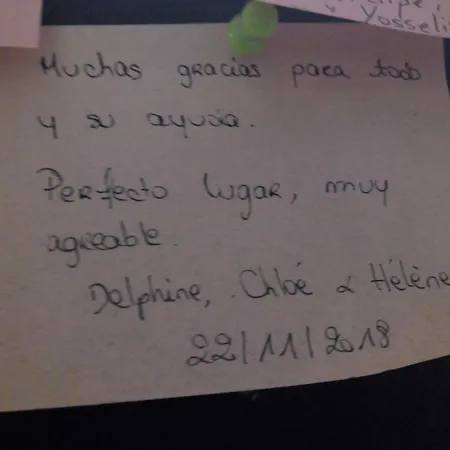 y Yosseli
Muchas gracias para todo
y su ayuda.
Perfecto lugar, muy
agreable.
Delphine, Chloé & Hélène
22/11/2018